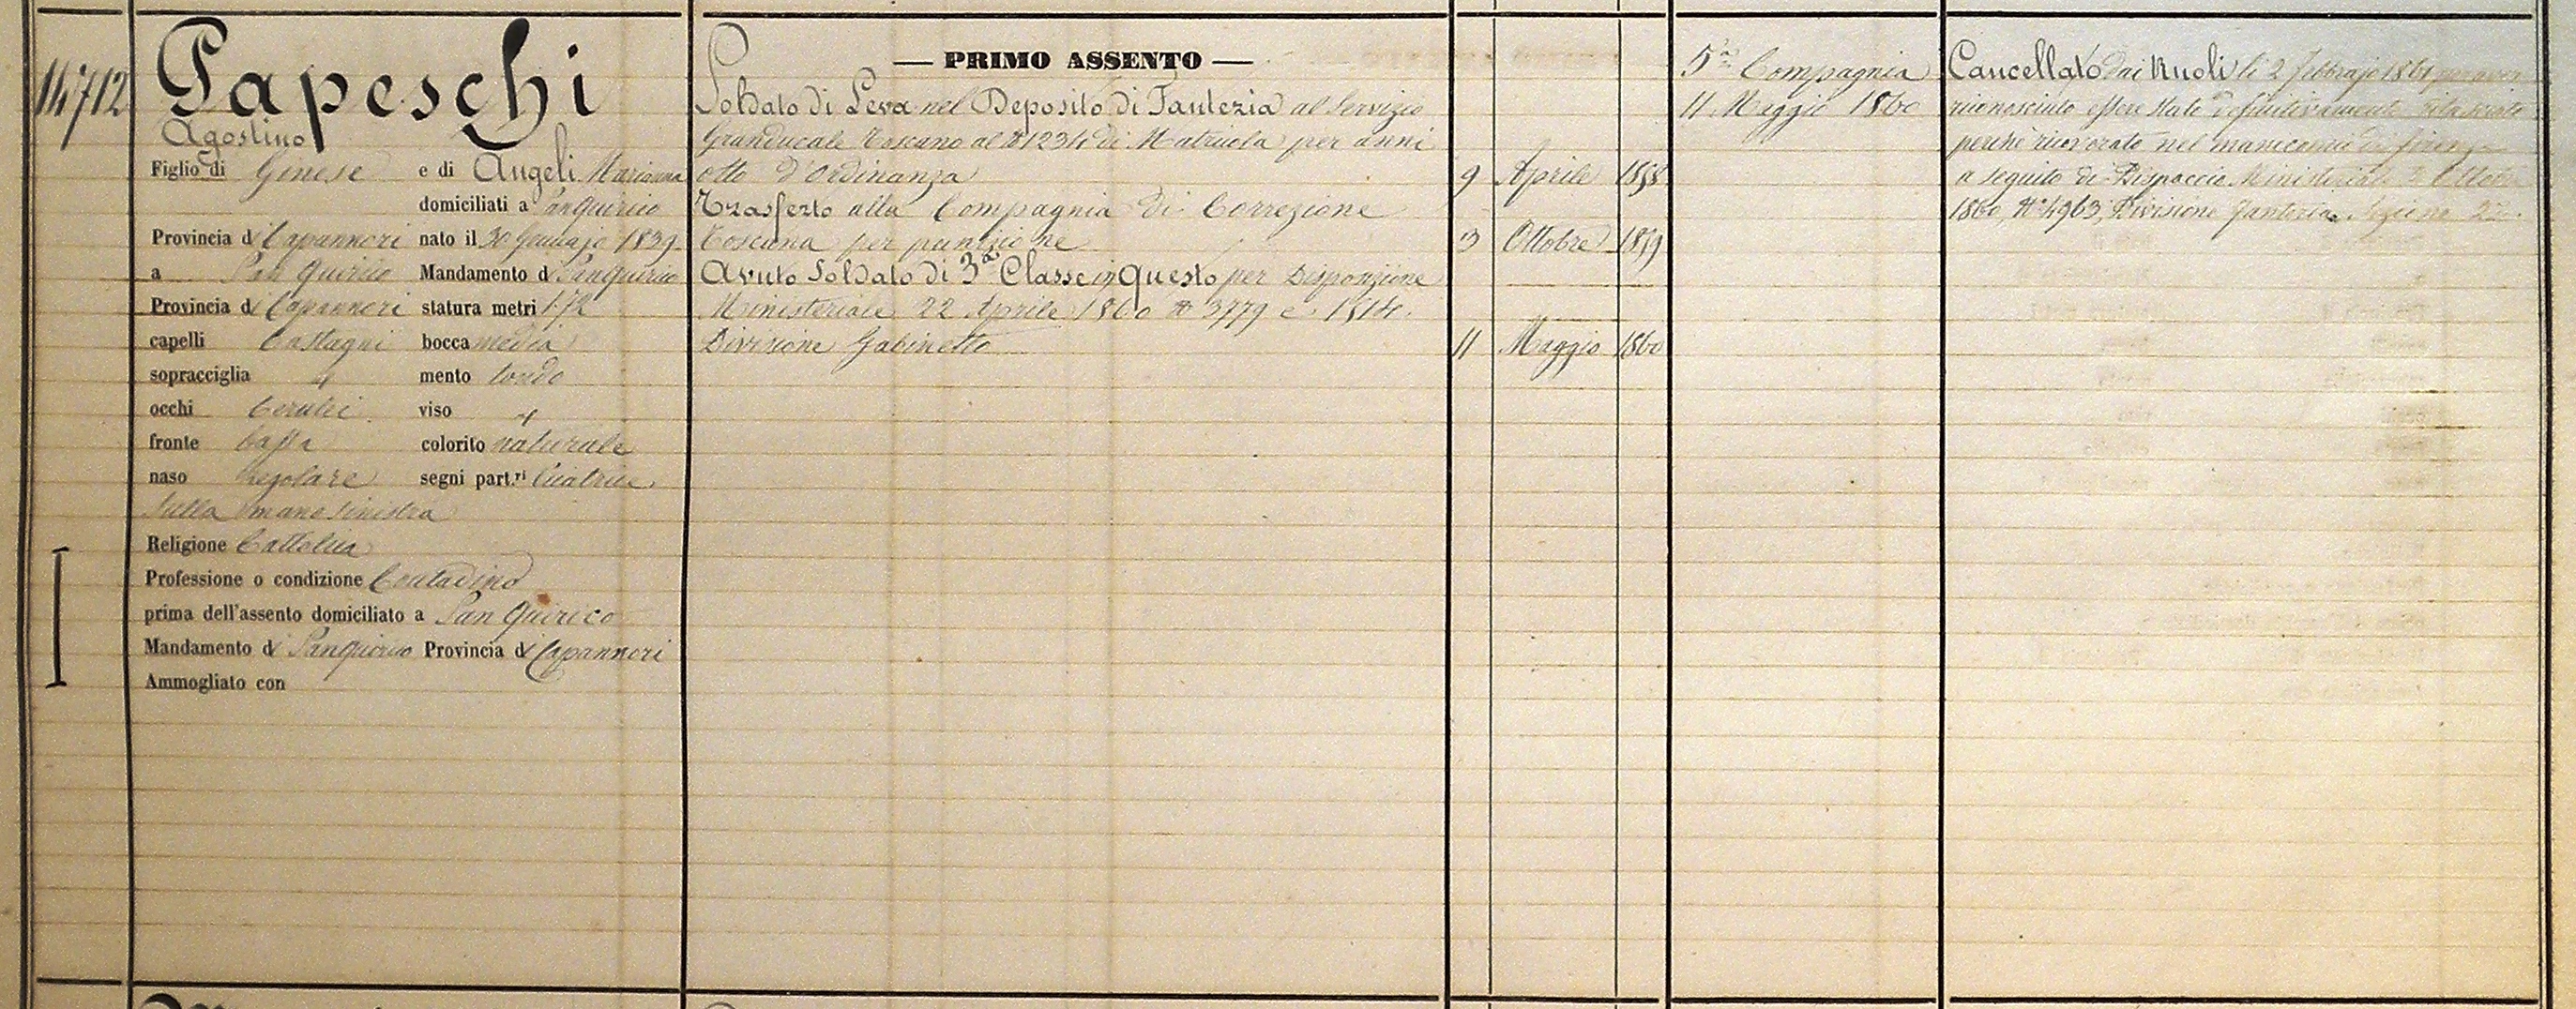 14712
Papeschi
Agostino
Figlio di Ginese e di Angeli Marianna
domiciliati a San Quirico
Provincia di Capannori nato il 30 Gennajo 1839
a San Quirico Mandamento di San Quirico
Provincia di Capannori statura metri 1.72
capelli Castagni bocca media
sopracciglia " mento tondo
occhi Cerulei viso "
fronte bassa colorito naturale
naso regolare segni part.ri Cicatrice
sulla mano sinistra
Religione Cattolica
Professione o condizione Contadino
prima dell'assento domiciliato a San Quirico
Mandamento di San Quirico Provincia di Capannori
Ammogliato con
— PRIMO ASSENTO —
Soldato di Leva nel Deposito di Fanteria al Servizio
Granducale Toscano al N. 1234 di Matricola per anni
otto d'Ordinanza 9 Aprile 1858
Trasferto alla Compagnia di Correzione
Toscana per punizione 3 Ottobre 1859
Avuto Soldato di 3a Classe in questo per Disposizione
Ministeriale 22 Aprile 1860 N. 3779 e 1514.
Divisione Gabinetto 11 Maggio 1860
5a Compagnia
11 Maggio 1860
Cancellato dai Ruoli li 2 febbrajo 1861 per aver
riconosciuto essere stato definitivamente rilasciato
perché ricoverato nel manicomio di Firenze
a seguito di Dispaccio Ministeriale 2 Ottobre
1860, N. 4963, Divisione Fanteria, Sezione 2a.